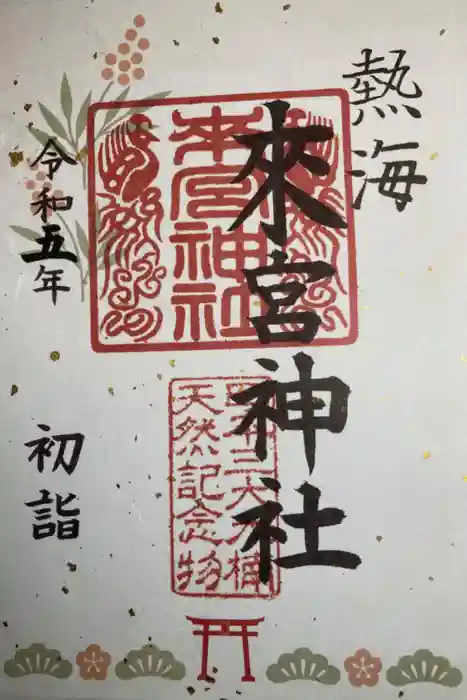 熱海
來宮神社
來宮神社
明和三大大楠
天然記念物
令和五年
初詣